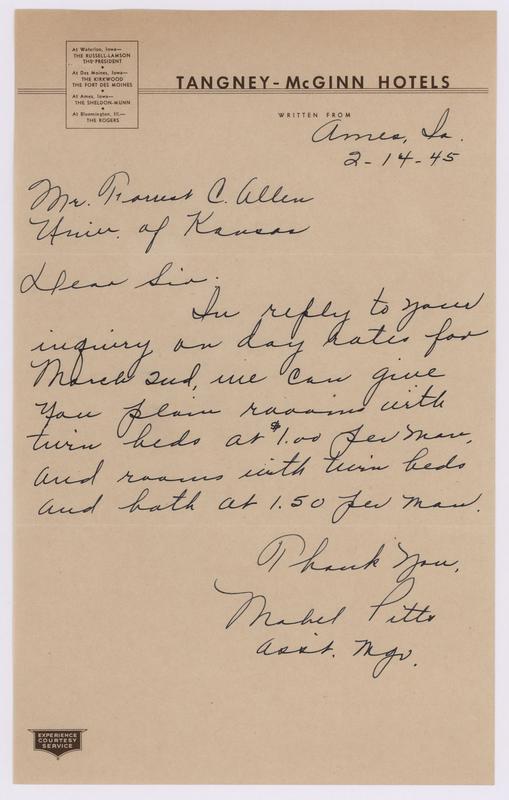 At Waterloo, Iowa—
THE RUSSELL-LAMSON
THE PRESIDENT
At Des Moines, Iowa—
THE KIRKWOOD
THE FORT DES MOINES
At Ames, Iowa—
THE SHELDON-MUNN
At Bloomington, Ill.—
THE ROGERS
TANGNEY-McGINN HOTELS
WRITTEN FROM
Ames, Ia.
2-14-45
Mr. Forrest C. Allen
Univ. of Kansas
Dear Sir.
In reply to your
inquiry on day rates for
March 2nd, we can give
you plain rooms with
twin beds at $1.00 per man,
and rooms with twin beds
and bath at 1.50 per man.
Thank You,
Mabel Pitts
Asst. Mgr.
EXPERIENCE
COURTESY
SERVICE